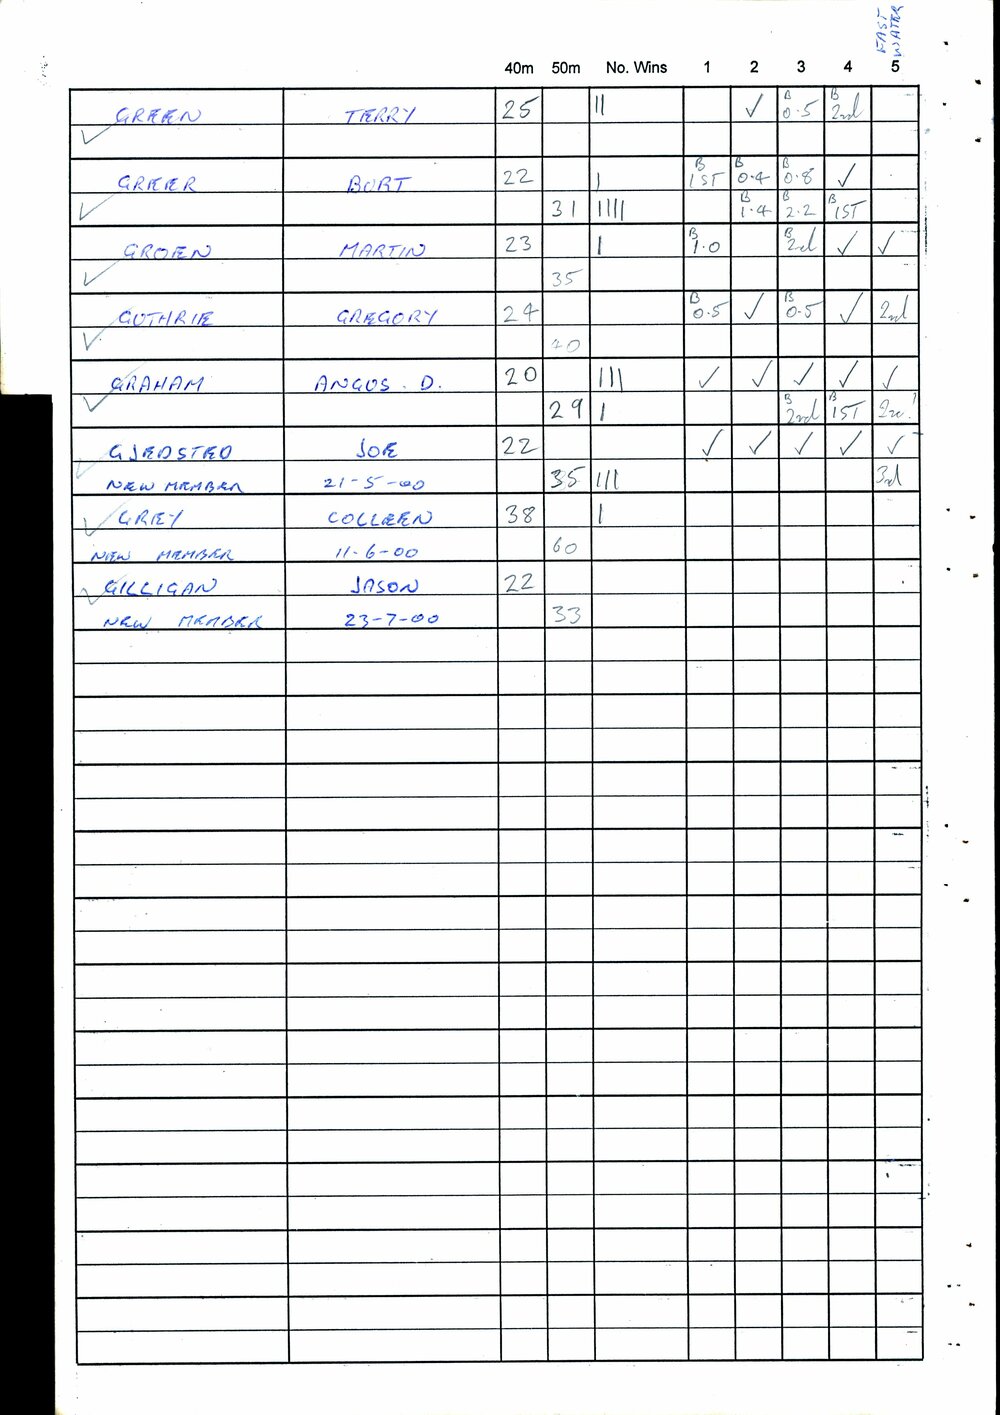 FAST WATER
40m 50m No. Wins 1 2 3 4 5
GREEN TERRY 25 || ✓ B 0.5 B 2nd
✓
GREER BURT 22 | B 1ST B 0.4 B 0.8 ✓
✓ 31 |||| B 1.4 B 2.2 B 1ST
GROEN MARTIN 23 | B 1.0 B 2nd ✓ ✓
✓ 35
GUTHRIE GREGORY 24 B 0.5 ✓ B 0.5 ✓ 2nd
✓ 40
GRAHAM ANGUS . D. 20 ||| ✓ ✓ ✓ ✓ ✓
✓ 29 | B 2nd B 1ST
GJEDSTED JOE 22 ✓ ✓ ✓ ✓ ✓
✓ NEW MEMBER 21-5-00 35 ||| 3rd
✓ GREY COLLEEN 38 |
NEW MEMBER 11-6-00 60
✓ GILLIGAN JASON 22
NEW MEMBER 23-7-00 33